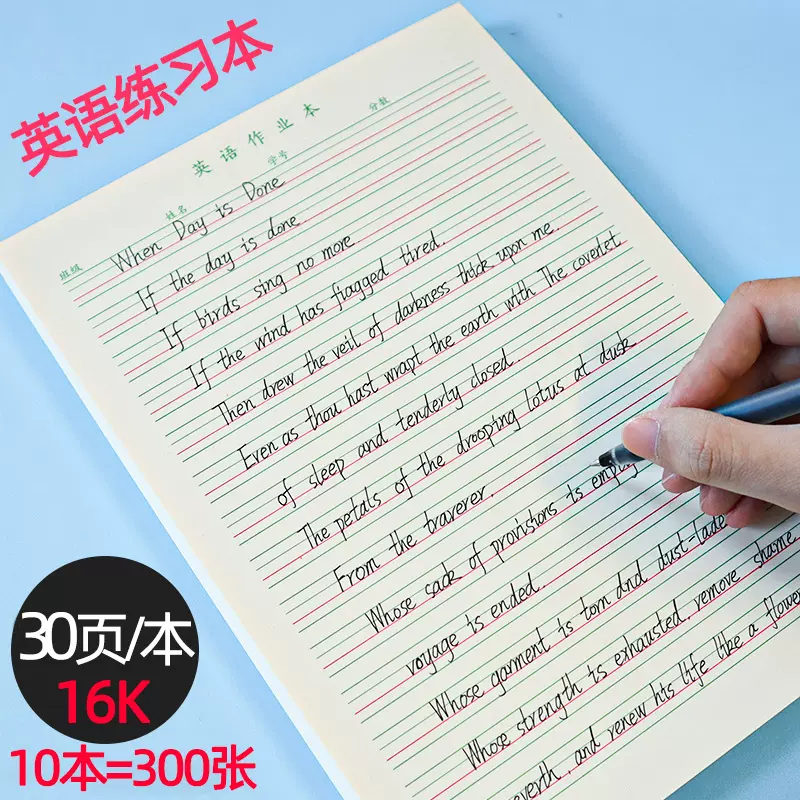 英语练习本
英语作业本
分数
学号
姓名
班级
When Day is Done
If the day is done
If birds sing no more
If the wind has fiagged tired.
Then drew the veil of darkness thick upon me.
Even as thou hast wrapt the earth with The coverlet
of sleep and tenderly closed.
The petals of the drooping lotus at dusk
From the traverer.
Whose sack of provistons is empty
voyage is ended.
Whose garment is torn and dust-lade
Whose strength is exhausted, remove shame
and renew his life like a flower
30页/本
16K
10本=300张